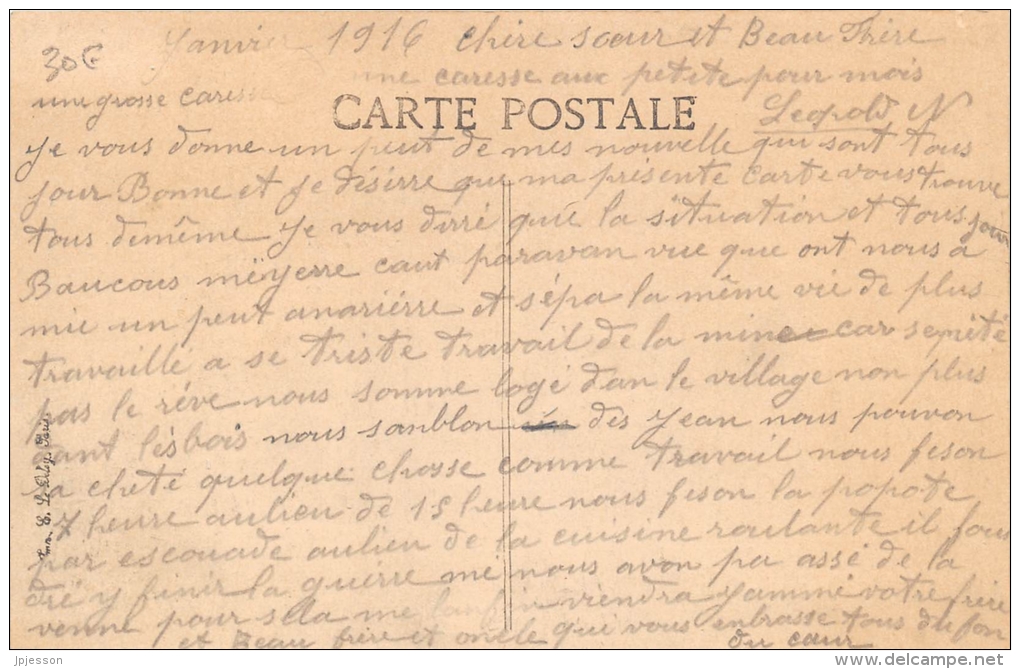 30€
Janvier 1916 chère sœur et Beau Frère
une caresse aux petite pour mois
une grosse caresse
CARTE POSTALE
Leopold N
Je vous donne un peut de mes nouvelle qui sont tous
jour Bonne et Je désirre qui ma présente carte vous trouve
tous demême Je vous dirré quie la situation et tous jour
Baucous mëyerre caut paravan vue que ont nous a
mie un peut anariérre et sépa la même vie de plus
travaillé a se triste travail de la mine car sepité
pas le réve nous somme logé dan le village non plus
dant lés bois nous sanblon dés Jean nous pouvon
a cheté quelque chosse comme travail nous feson
7 heure aulieu de 15 heure nous feson la popote
par escouade aulieu de la cuisine roulante il fous
dré y finir la guirre mé nous avon pa assé de la
venne pour sela me lanfin viendra Jammé votre frére
et Beau frére et oncle qui vous enbrasse tous du fon
du cœur
Imp. E. Le Deley, Paris
jpjesson